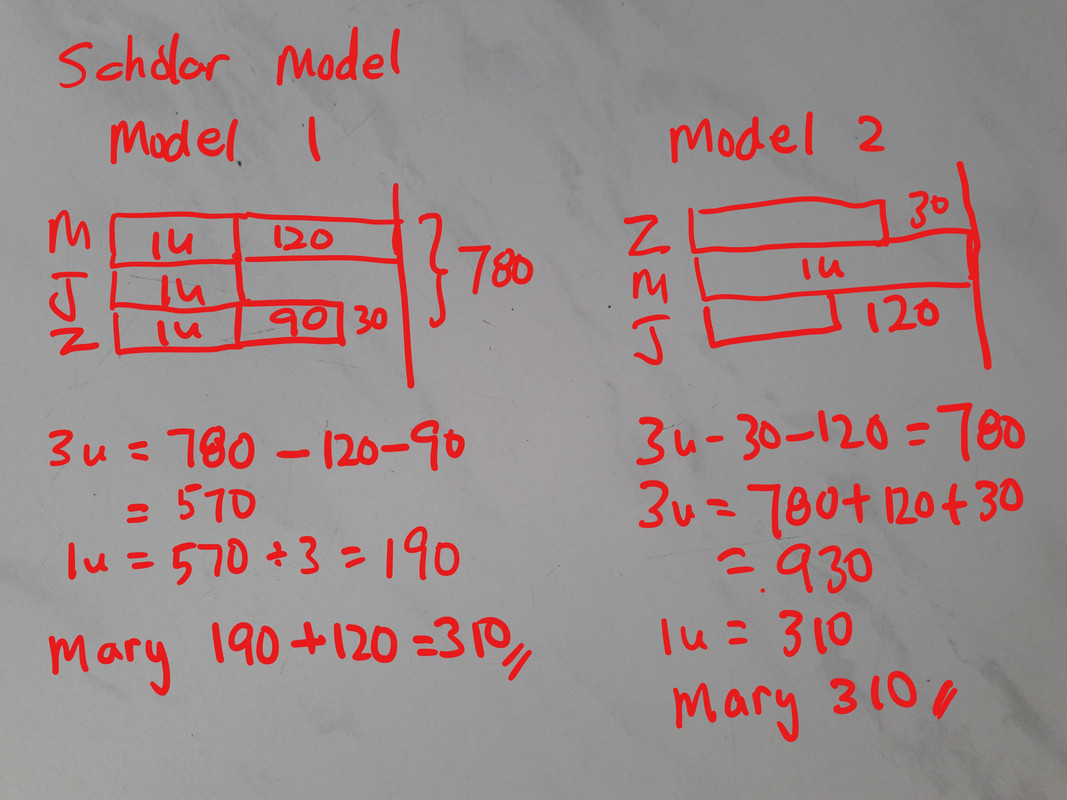 Scholar Model
Model 1
M 1u 120
J 1u
Z 1u 90 30
780
3u = 780 - 120 - 90
= 570
1u = 570 ÷ 3 = 190
Mary 190 + 120 = 310
Model 2
Z 30
M 1u
J 120
3u - 30 - 120 = 780
3u = 780 + 120 + 30
= 930
1u = 310
Mary 310